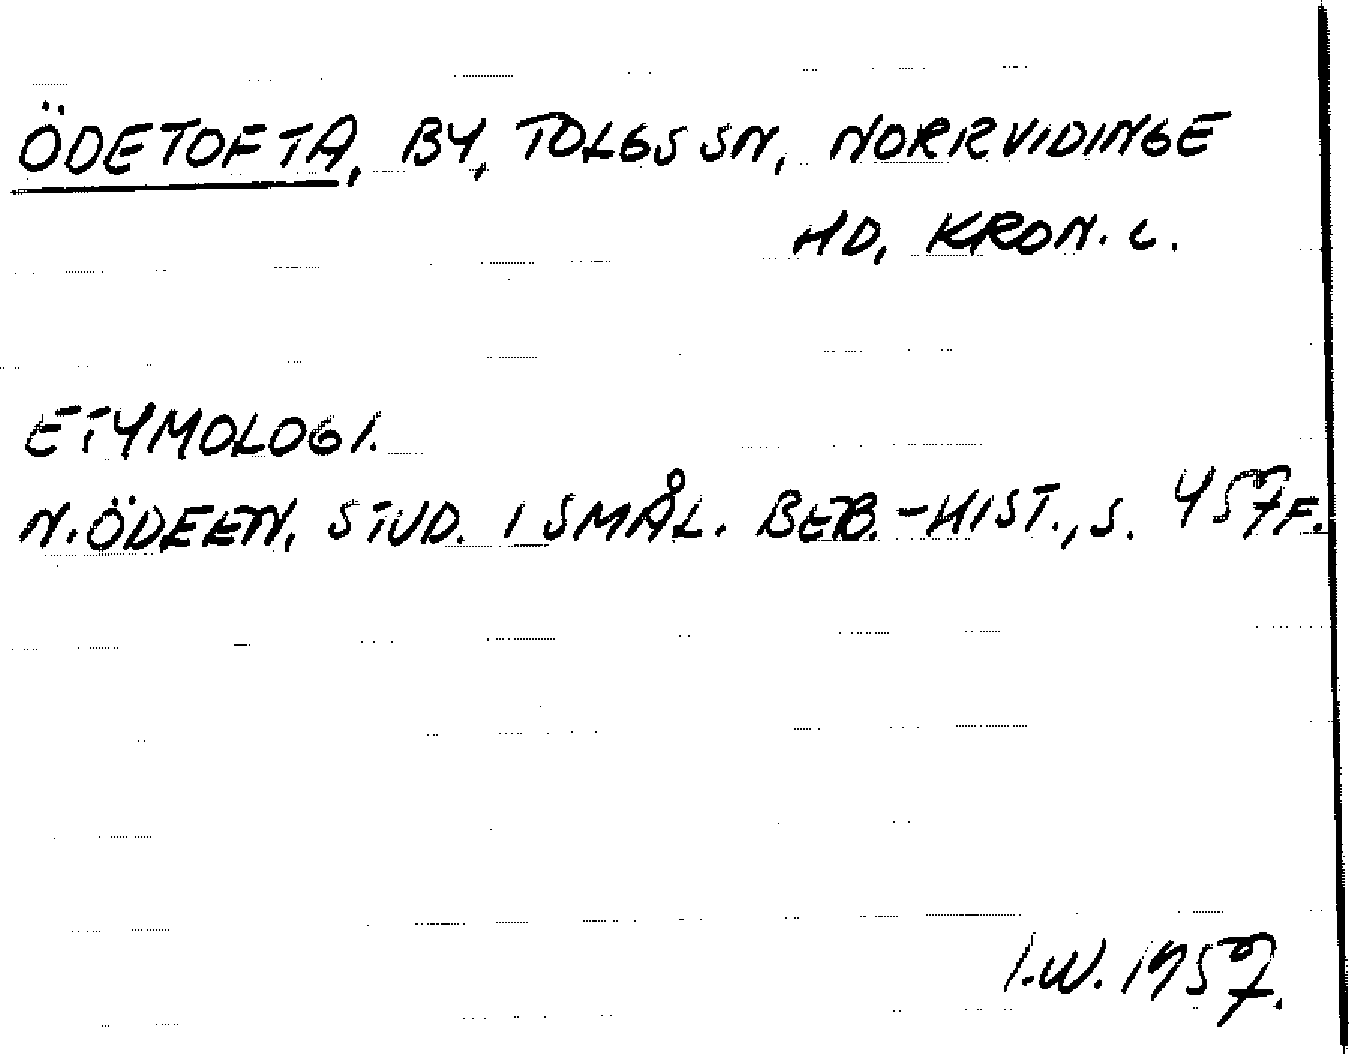 ÖDETOFTA, BY, TOLGS SN, NORRVIDINGE
HD, KRON. L.
ETYMOLOGI.
N. ÖDEEN, STUD. I SMÅL. BEB.-HIST., S. 457 F.
I.W. 1957.